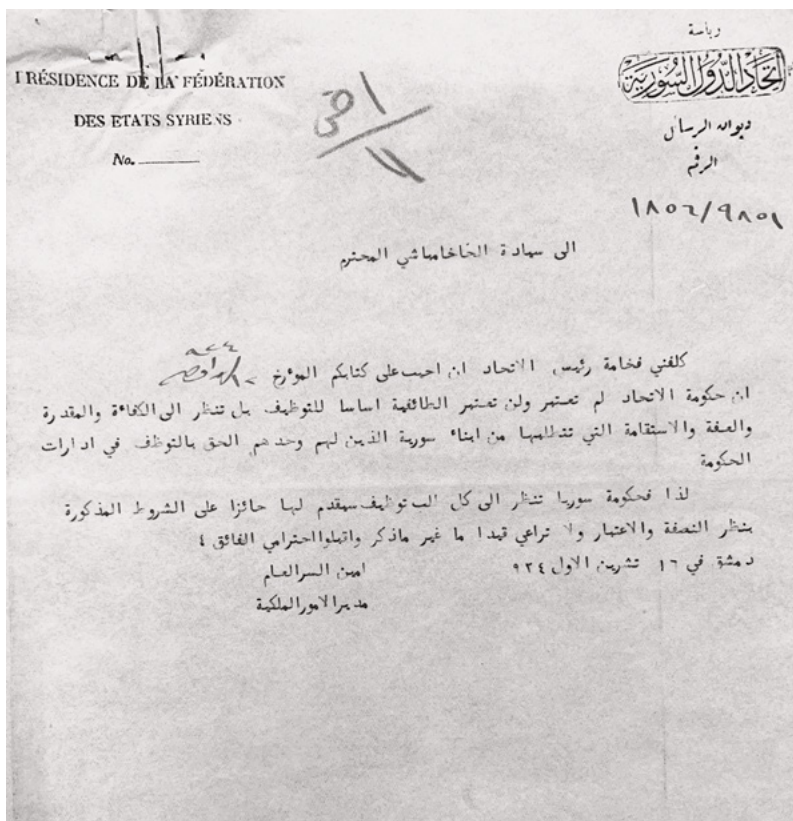 PRÉSIDENCE DE LA FÉDÉRATION
DES ETATS SYRIENS
No.
رياسة
اتحاد الدول السورية
ديوان الرسائل
الرقم
الى سعادة الحاخامباشي المحترم
كلفني فخامة رئيس الاتحاد ان اجيب على كتابكم المؤرخ
ان حكومة الاتحاد لم تعتبر ولن تعتبر الطائفية اساسا للتوظيف بل تنظر الى الكفاءة والمقدرة
والعفة والاستقامة التي تتطلبها من ابناء سورية الذين لهم وحدهم الحق بالتوظف في ادارات
الحكومة
لذا فحكومة سوريا تنظر الى كل طلب توظيف سيقدم لها حائزا على الشروط المذكورة
بنظر النصفة والاعتبار ولا تراعي قيدا ما غير ماذكر واقبلوا احترامي الفائق ؛
دمشق في ١٦ تشرين الاول ٩٢٤
امين السر العام
مدير الامور الملكية